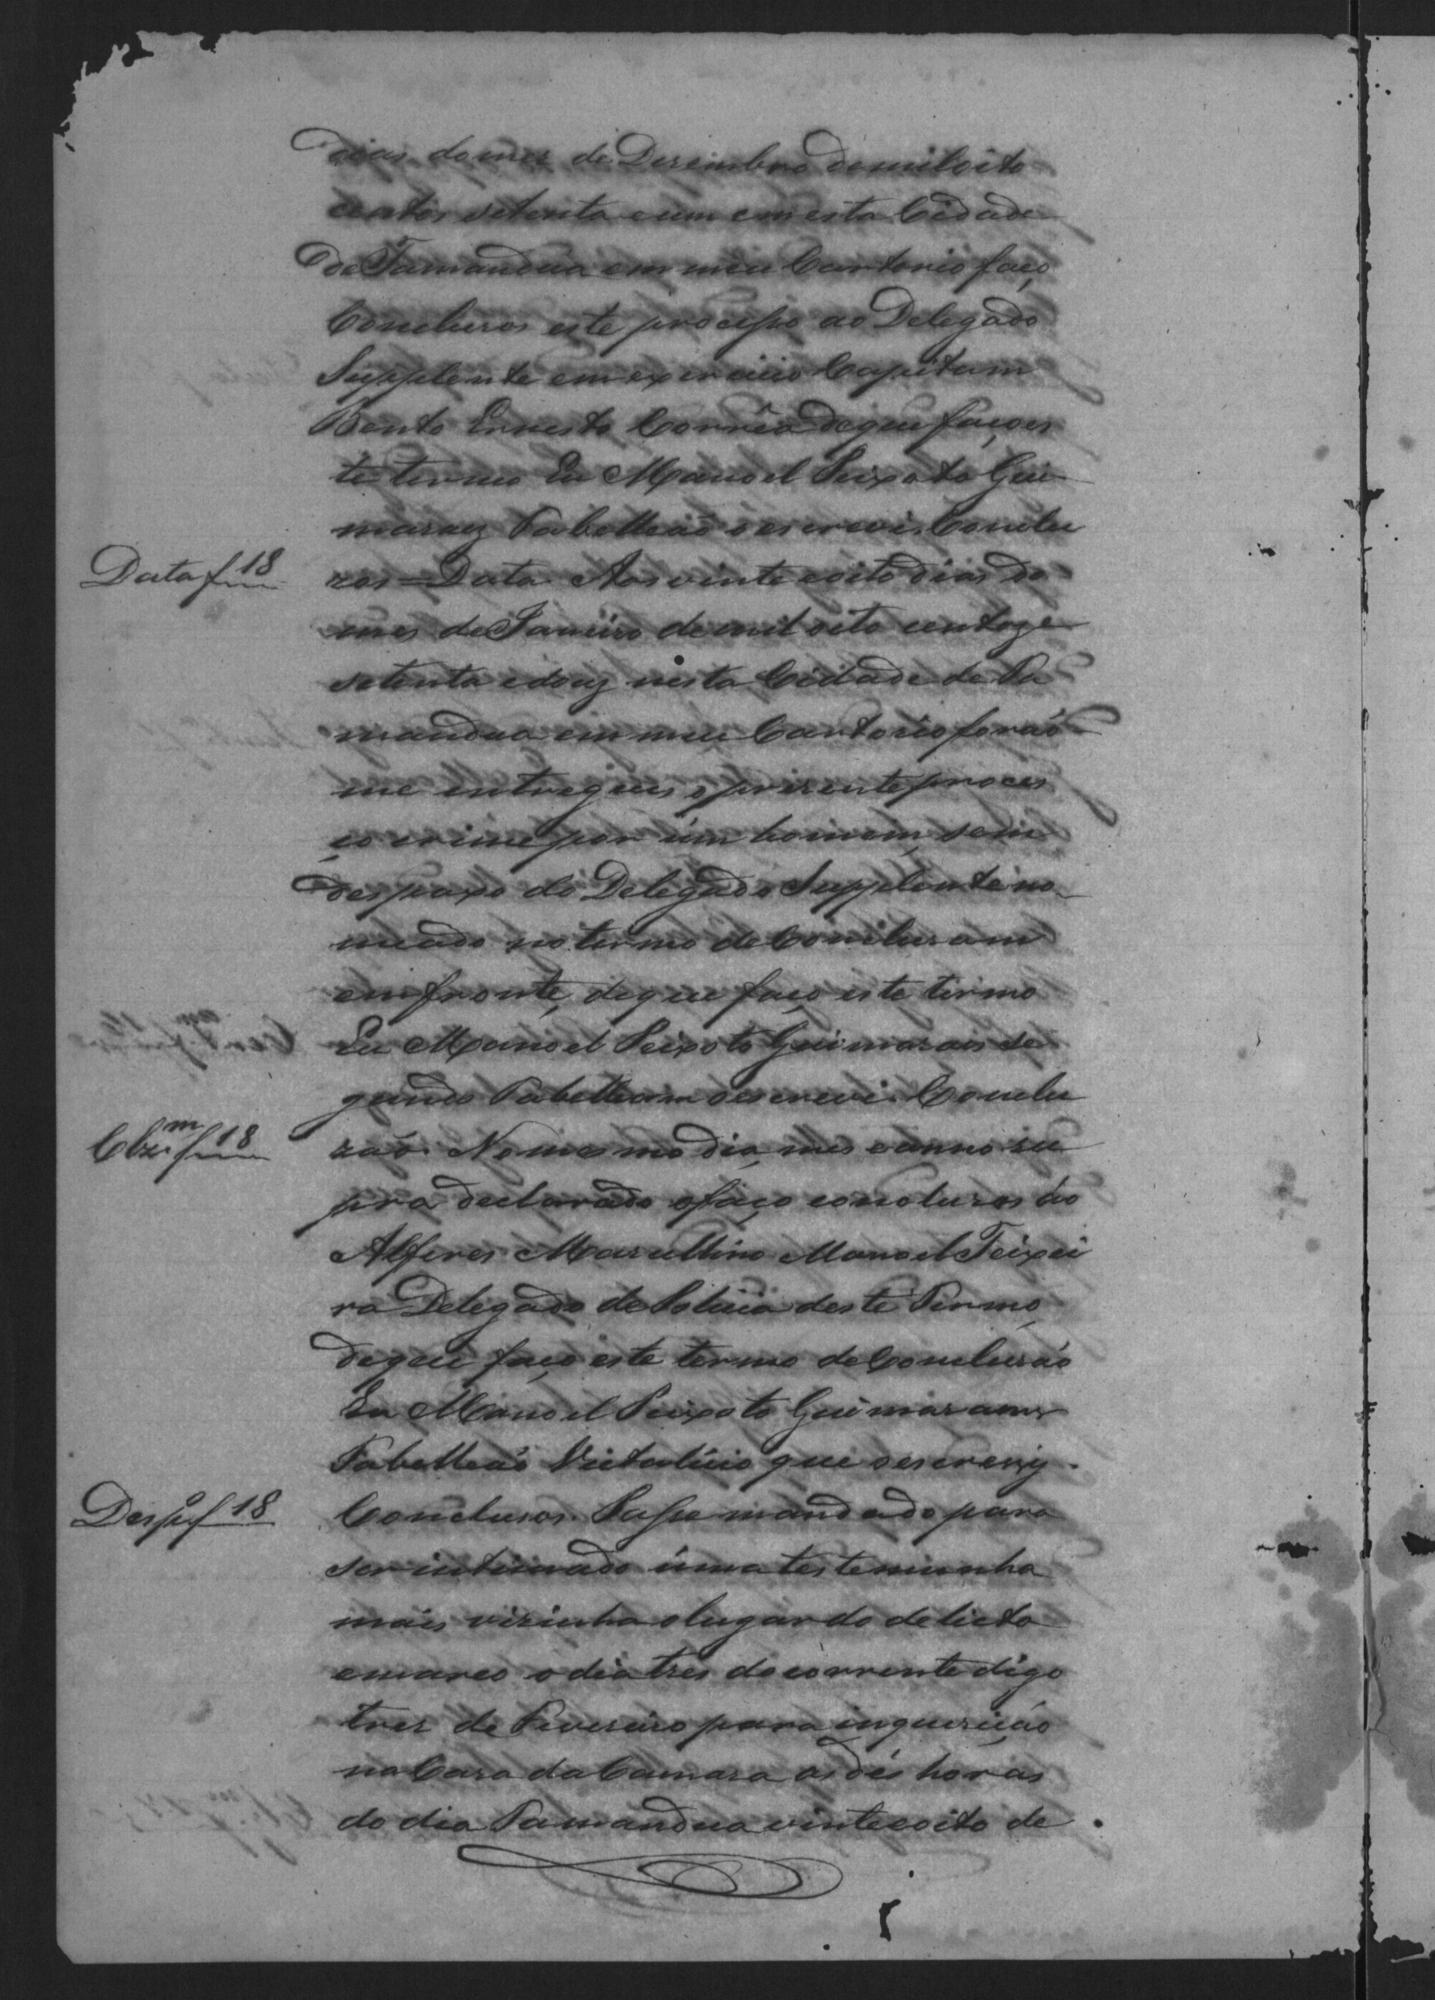 dias do mes de Desembro de mil oito
centos setenta e um em esta Cidade
de Tamandua em meu Cartorio faço
Concluzos este processo ao Delegado
Supplente em exercicio Capitam
Bento Ernesto Corrêa de que faço es
te termo Eu Manoel Peixoto Gui
maraez Tabelleão o escrevi. Conclu
Data f 18
zos = Data Aos vinte e oito dias do
mes de Janeiro de mil oito centoz e
setenta e douz nesta Cidade de Ta
mandua em meu Cartorio forão
me entregues o prizente proces
ço crime por úm homem, sem
despaxo do Delegado Supplente no
meado no termo de Concluzam
em fronte, de que faço este termo
Eu Manoel Peixoto Guimarais se
gundo Tabelleam o escrevi. Conclu
Clzm f 18
zão. No mesmo dia, mes e anno su
pra declarado o faço concluzos ao
Alferes Marcellino Manoel Teixei
ra Delegado de Policia deste Termo,
de que faço este termo de Concluzão
Eu Manoel Peixoto Guimaraens
Tabelleão Vitalicio que o escrevy.
Desp.o f 18
Concluzos. Passe mandado para
ser intimado úma testemunha
mais vizinha o lugar do delicto
e marco o dia tres do corrente digo
tres de Fevereiro para inquerição
na Caza da Camara as dés horas
do dia Tamandua vinte e oito de